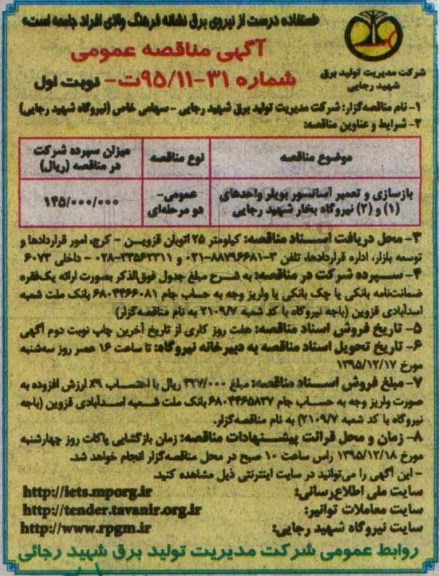 استفاده درست از نیروی برق نشانه فرهنگ والای افراد جامعه است
شرکت مدیریت تولید برق
شهید رجایی
آگهی مناقصه عمومی
شماره ۳۱-۹۵/۱۱ت- نوبت اول
۱- نام مناقصه‌گزار: شرکت مدیریت تولید برق شهید رجایی - سهامی خاص (نیروگاه شهید رجایی)
۲- شرایط و عناوین مناقصه:
موضوع مناقصه
نوع مناقصه
میزان سپرده شرکت
در مناقصه (ریال)
بازسازی و تعمیر آسانسور بویلر واحدهای
(۱) و (۲) نیروگاه بخار شهید رجایی
عمومی-
دو مرحله‌ای
۱۴۵/۰۰۰/۰۰۰
۳- محل دریافت اسناد مناقصه: کیلومتر ۲۵ اتوبان قزوین - کرج، امور قراردادها و
توسعه بازار، اداره قراردادها، تلفن ۳-۸۸۷۹۶۶۸۱-۰۲۱ و ۳۳۵۶۲۳۱۱-۰۲۸ - داخلی ۶۰۷۳
۴- سپرده شرکت در مناقصه: به شرح مبلغ جدول فوق‌الذکر بصورت ارائه یک‌فقره
ضمانت‌نامه بانکی یا چک بانکی یا واریز وجه به حساب جام ۶۸۰۴۴۶۶۰۸۱ بانک ملت شعبه
اسدآبادی قزوین (باجه نیروگاه با کد شعبه ۲۱۰۹/۷ به نام مناقصه‌گزار)
۵- تاریخ فروش اسناد مناقصه: هفت روز کاری از تاریخ آخرین چاپ نوبت دوم آگهی
۶- تاریخ تحویل اسناد مناقصه به دبیرخانه نیروگاه: تا ساعت ۱۶ عصر روز سه‌شنبه
مورخ ۱۳۹۵/۱۲/۱۷
۷- مبلغ فروش اسناد مناقصه: مبلغ ۳۲۷/۰۰۰ ریال با احتساب ۹٪ ارزش افزوده به
صورت واریز وجه به حساب جام ۶۸۰۴۴۶۵۸۳۷ بانک ملت شعبه اسدآبادی قزوین (باجه
نیروگاه با کد شعبه ۲۱۰۹/۷) به نام مناقصه‌گزار.
۸- زمان و محل قرائت پیشنهادات مناقصه: زمان بازگشایی پاکات روز چهارشنبه
مورخ ۱۳۹۵/۱۲/۱۸ راس ساعت ۱۰ صبح در محل مناقصه‌گزار انجام خواهد شد.
- این آگهی را می‌توانید در سایت اینترنتی ذیل مشاهده کنید.
سایت ملی اطلاع‌رسانی: http://iets.mporg.ir
سایت معاملات توانیر: http://tender.tavanir.org.ir
سایت نیروگاه شهید رجایی: http://www.rpgm.ir
روابط عمومی شرکت مدیریت تولید برق شهید رجائی